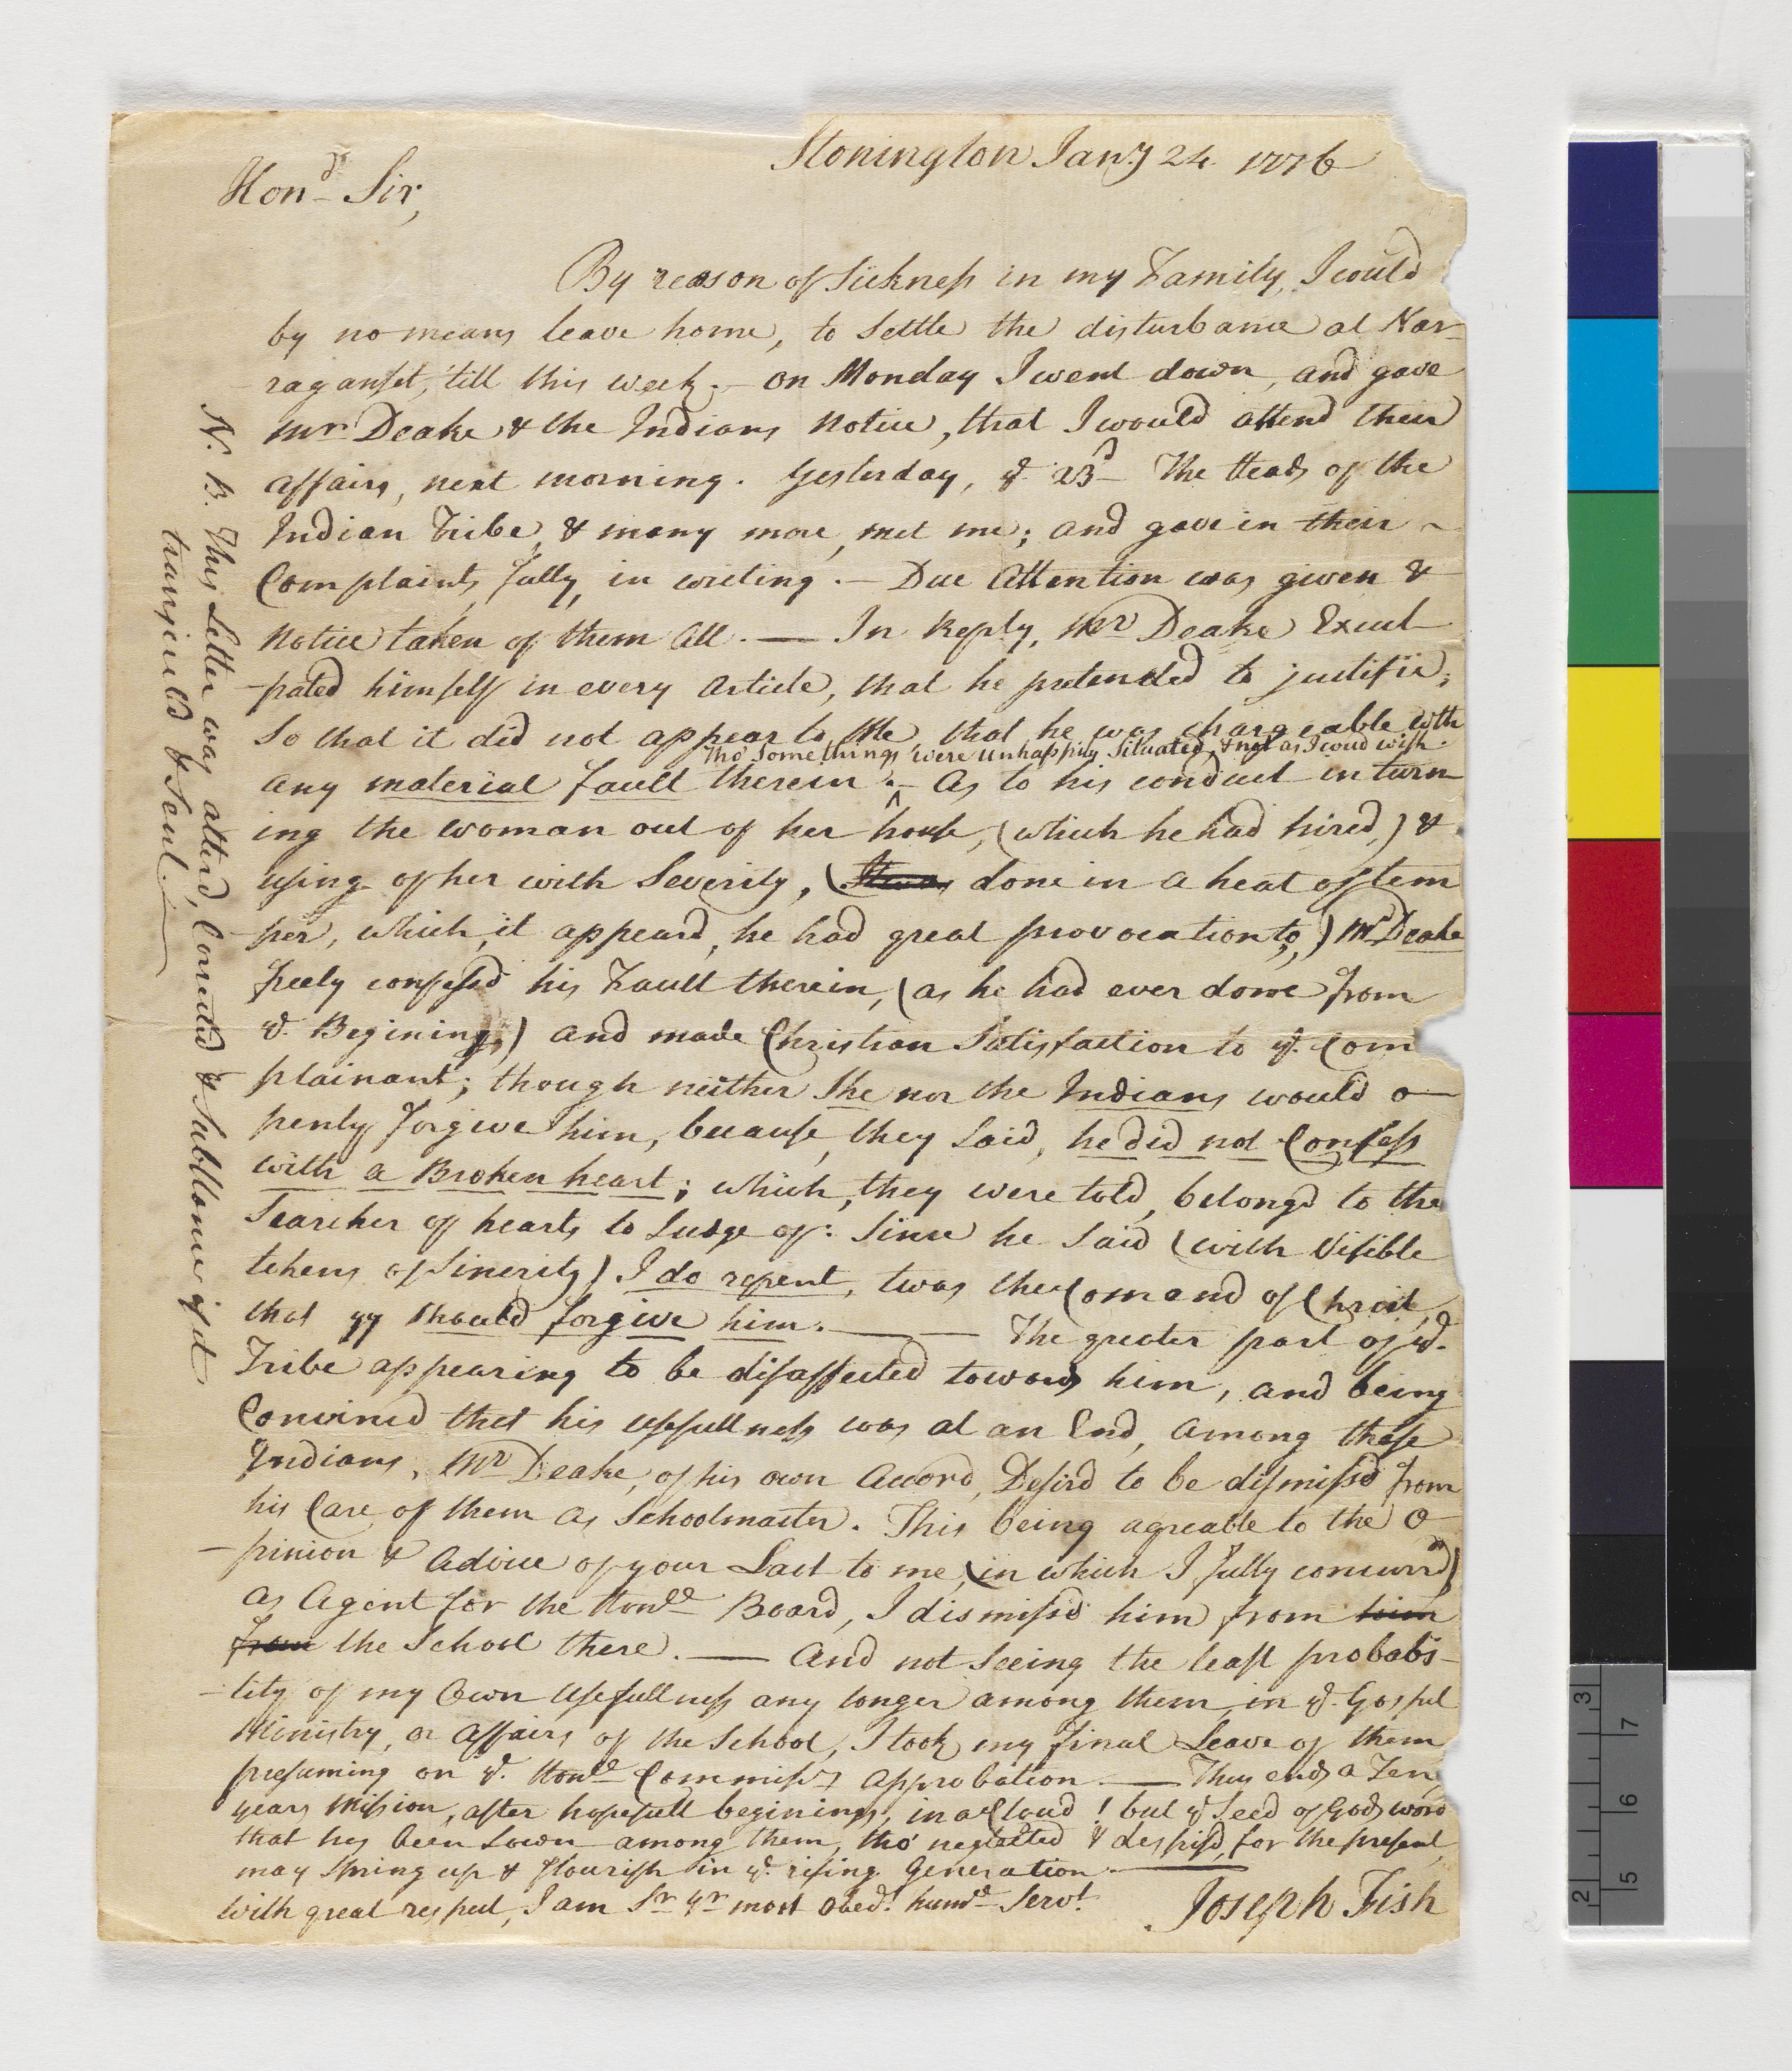 Stonington Jany 24. 1776
Hond Sir,
By reason of Sickness in my Family, I could
by no means leave home, to Settle the disturbance at Nar-
raganset, 'till this week.- On Monday I went down, and gave
Mr Deake & the Indians Notice, that I would attend their
Affairs, next morning. Yesterday, ye 23d- The Heads of the
Indian Tribe, & many more, met me; and gave in their
Complaints, fully, in writing.- Due Attention was given &
Notice taken of them all.— In Reply, Mr Deake Excul
-pated himself in every Article, that he pretended to justifie;
So that it did not appear to Me, that he was chargeable with
tho' Some things were unhappily Situated, & not as I coud wish.
any material fault therein ^.- As to his conduct in turn
ing the woman out of her house, (which he had hired,) &
using of her with Severity, (It was done in a heat of tem
per, which, it appeard, he had great provocation to,) Mr Deake
freely confessd his Fault therein, (as he had ever done from
ye Begining,) and made Christian Satisfaction to ye Com
plainant; though neither She nor the Indians would o-
penly forgive him, because, they Said, he did not Confess
with a Broken heart; which, they were told, belongd to the
Searcher of hearts to Judge of: Since he Said (with Visible
tokens of Sincerity) I do repent, twas the Comand of Christ,
that yy should forgive him. — — The greater part of ye
Tribe appearing to be disaffected towards him, and being
Convincd that his usefullness was at an End, among these
Indians, Mr Deake, of his own Accord, Desird to be dismissd from
his Care of them as Schoolmaster. This being agreable to the O-
-pinion & Advice of your Last to me, (in which I fully concurrd)
as Agent for the Honle Board, I dismissd him from him
from the School there.— And not Seeing the least probabi-
-lity of my Own Usefullness any longer among them, in ye Gospel
Ministry, or Affairs of the School, I took my final Leave of them
presuming on ye Honle Commissrs Approbation.— Thus ends a Ten
years Mission, after hopefull beginings, in a Cloud! but ye Seed of Gods word
that has been Sown among them, tho' neglected & despisd, for the present,
may Spring up & flourish in ye rising Generation.—
With great respect, I am Sr yr most Obedt humle Servt
Joseph Fish
N. B. This Letter was alterd, Corrected & Some of it
transcribd & Sent.—